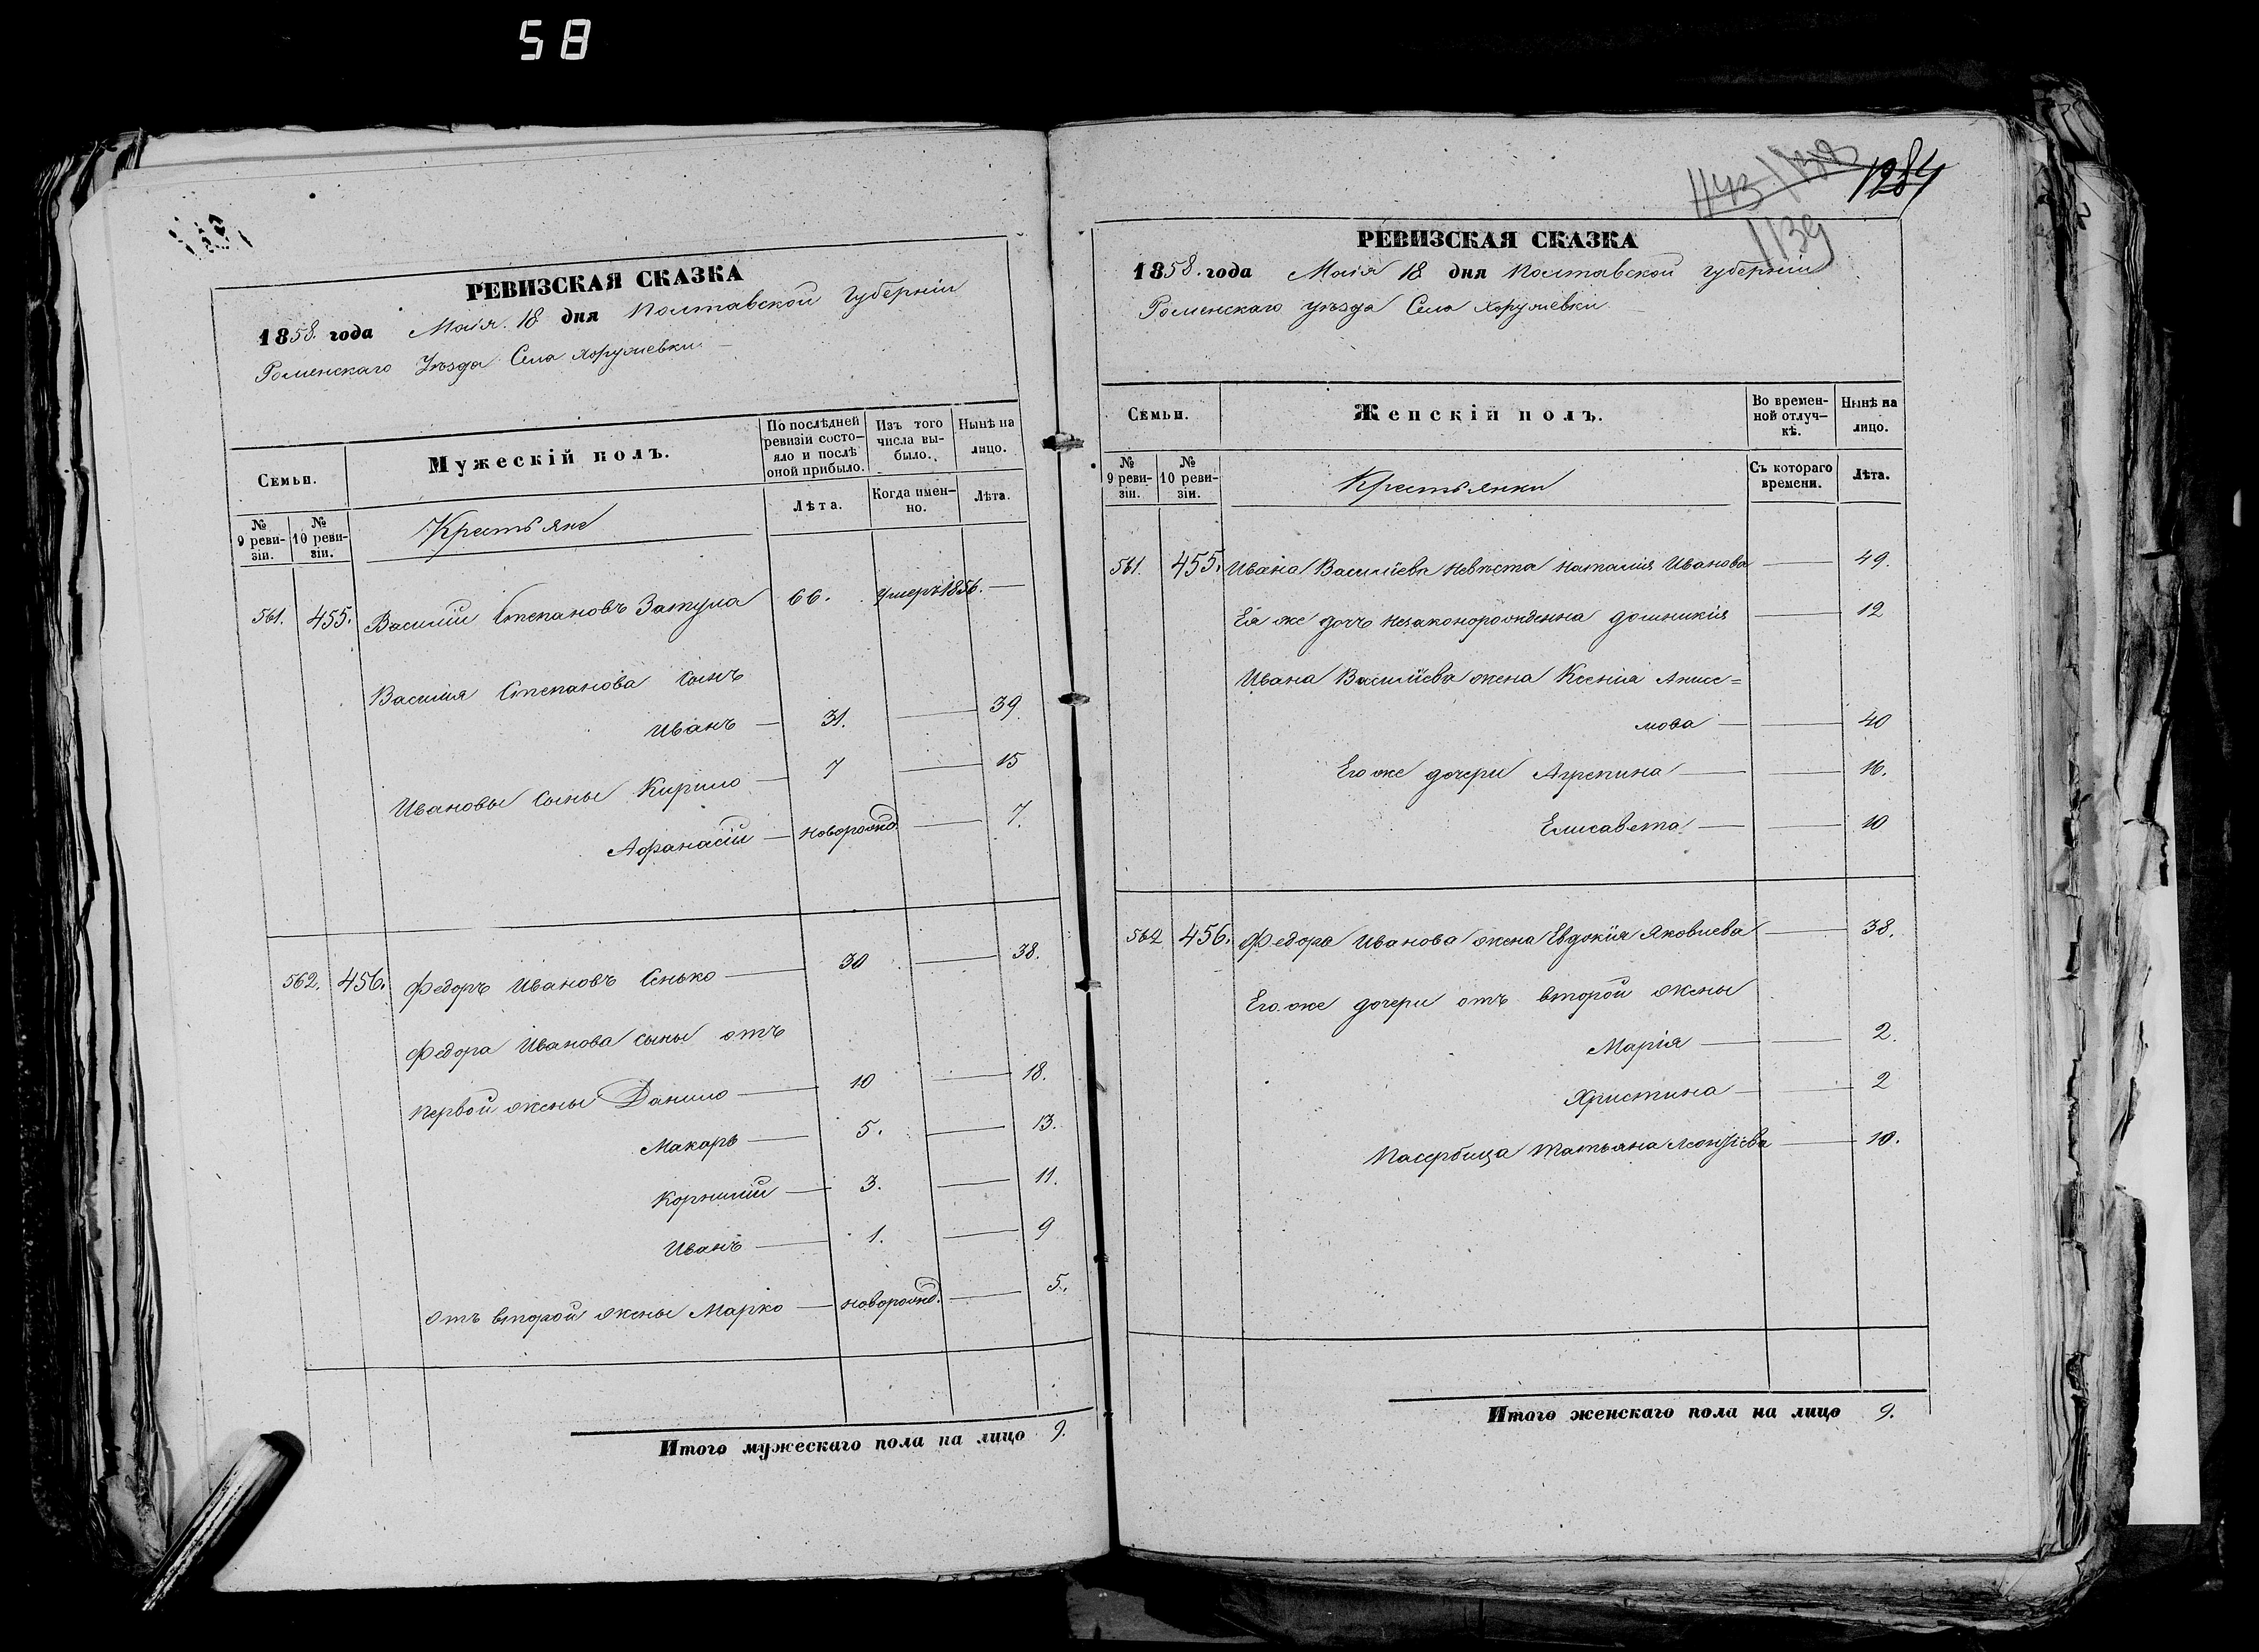 58
РЕВИЗСКАЯ СКАЗКА
1858. года Маія 18 дня Полтавской Губерніи
Роменскаго Уѣзда Села Хоружевки
Семьи.
Мужескій полъ.
По послѣдней ревизіи состояло и послѣ оной прибыло.
Изъ того числа выбыло.
Нынѣ на лицо.
№ 9 ревизіи.
№ 10 ревизіи.
Крестьяне
Лѣта.
Когда именно.
Лѣта.
561. 455. Василій Степановъ Затула 66. умеръ 1856. —
Василія Степанова сынъ
Иванъ — 31. — 39.
Ивановы сыны Кирило — 7 — 15
Афанасій — новорожд. — 7.
562. 456. Федоръ Ивановъ Сенько — 30 — 38.
Федора Иванова сыны отъ
первой жены Данило — 10 — 18.
Макаръ — 5. — 13.
Корнилій — 3. — 11.
Иванъ — 1. — 9
отъ второй жены Марко — новорожд. — 5.
Итого мужескаго пола на лицо 9.
1143 1284
1139
РЕВИЗСКАЯ СКАЗКА
1858. года Маія 18 дня Полтавской губерніи
Роменскаго уѣзда Села Хоружевки
Семьи.
Женскій полъ.
Во временной отлучкѣ.
Нынѣ на лицо.
№ 9 ревизіи.
№ 10 ревизіи.
Крестьянки
Съ котораго времени.
Лѣта.
561. 455. Ивана Василіева невѣста Наталія Иванова — 49.
Ея же дочь незаконорожденна Домникія — 12
Ивана Василіева жена Ксенія Анисс=
мова — — 40
Его же дочери Агрепина — — 16.
Елисавета — — 10
562 456. Федора Иванова жена Евдокія Яковлева — 38.
Его же дочери отъ второй жены
Марія — — 2.
Христина — — 2
Пасербица Татьяна Леонтіева — 10.
Итого женскаго пола на лицо 9.